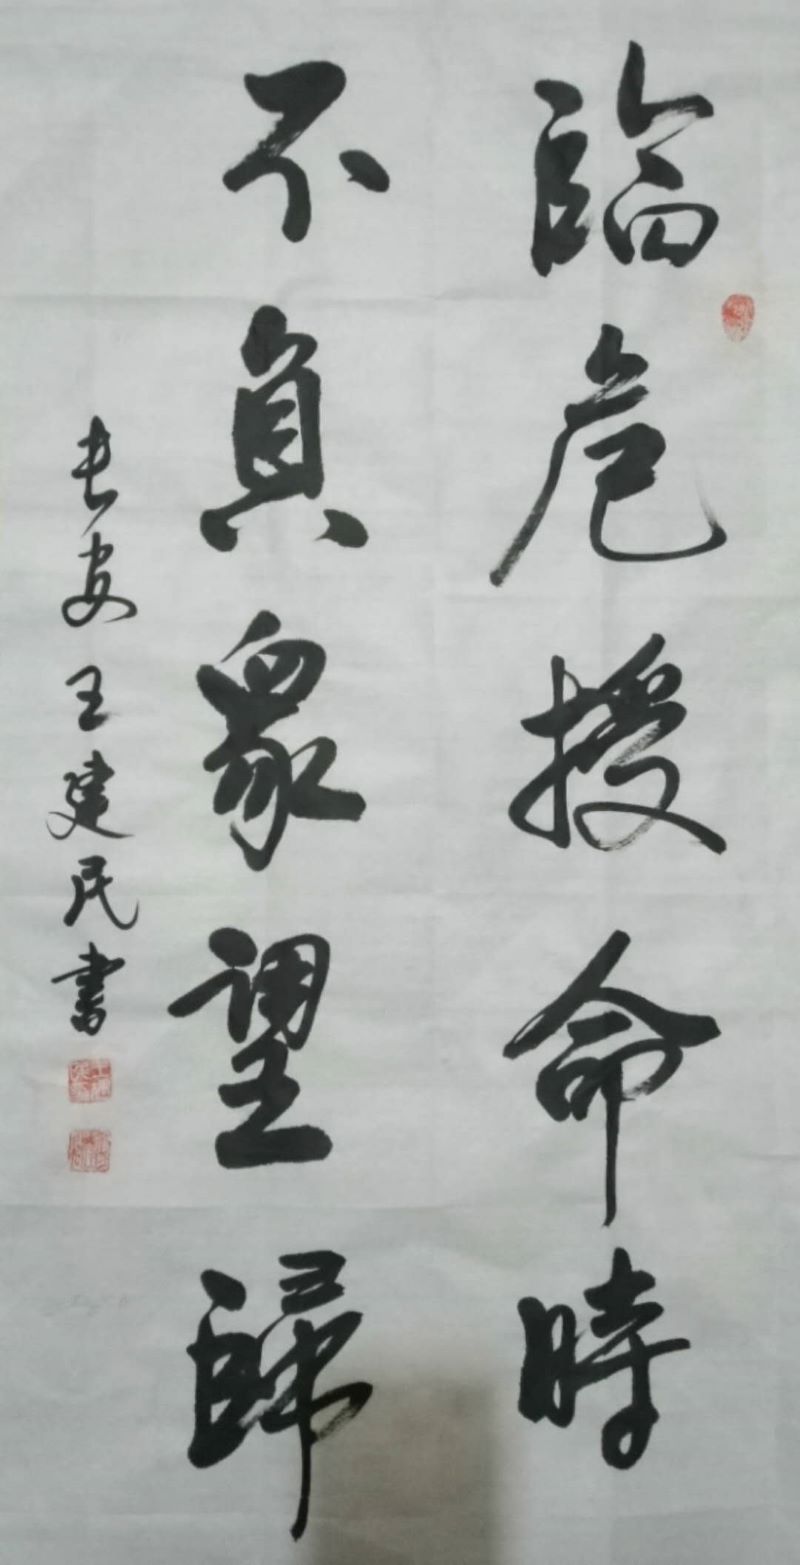 臨危授命時
不負衆望歸
長安王建民書